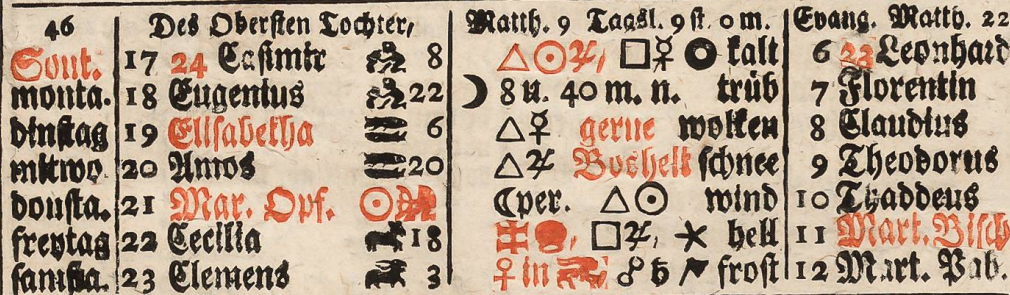 46 Des Obersten Tochter, Matth. 9 Tagsl. 9 st. 0 m. Evang. Matth. 22
Sont. 17 24 Casimir 8 △☉♃, □☿ kalt 6 23 Leonhard
monta. 18 Eugenius 22 ☽ 8 u. 40 m. n. trüb 7 Florentin
dinstag 19 Elisabetha 6 △☿ gerne wolken 8 Claudius
mitwo. 20 Amos 20 △♃ Bosheit schnee 9 Theodorus
donsta. 21 Mar. Opf. ☉ ☾per. △☉ wind 10 Thaddeus
freytag 22 Cecilia 18 □♃, ⚹ hell 11 Mart. Bisch
samsta. 23 Clemens 3 ♀ in ☍♄ frost 12 Mart. Pab.